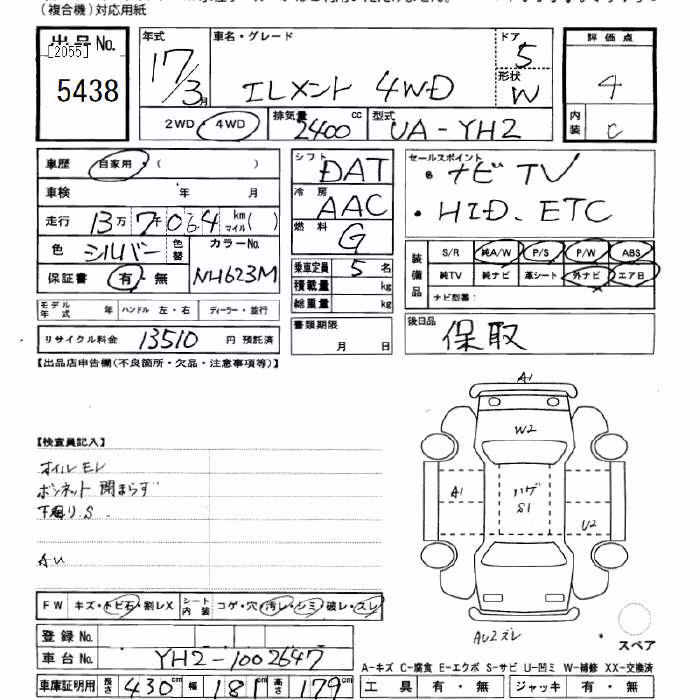 (複合機)対応用紙
出品No.
[2055]
5438
年式
17/3月
車名・グレード
エレメント 4WD
ドア
5
形状
W
評価点
4
内装
C
2WD・4WD
排気量
2400cc
型式
UA-YH2
車歴
自家用・( )
車検 年 月
走行 13万7千064 km マイル( )
色 シルバー 色替
カラーNo.
NH623M
保証書 有・無
モデル年式 年 ハンドル 左・右 ディーラー・並行
リサイクル料金 13510 円 預託済
シフト DAT
冷房 AAC
燃料 G
乗車定員 5 名
積載量 kg
総重量 kg
書類期限
月 日
セールスポイント
・ナビ TV
・HID. ETC
装備品
S/R 純A/W P/S P/W ABS
純TV 純ナビ 革シート 外ナビ エアB
ナビ型番:
後日品
保取
【出品店申告欄(不良箇所・欠品・注意事項等)】
【検査員記入】
オイルモレ
ボンネット 開まらず
下廻り.S.
AU
A1
W2
A1
ハゲ
S1
U2
AU2ズレ
スペア
FW キズ・トビ石・割レX
シート内装 コゲ・穴・汚レ・シミ・破レ・スレ
登録No.
車台No. YH2-1002647
車庫証明用 長さ 430cm 幅 181cm 高さ 179cm
A-キズ C-腐食 E-エクボ S-サビ U-凹ミ W-補修 XX-交換済
工具 有・無 ジャッキ 有・無